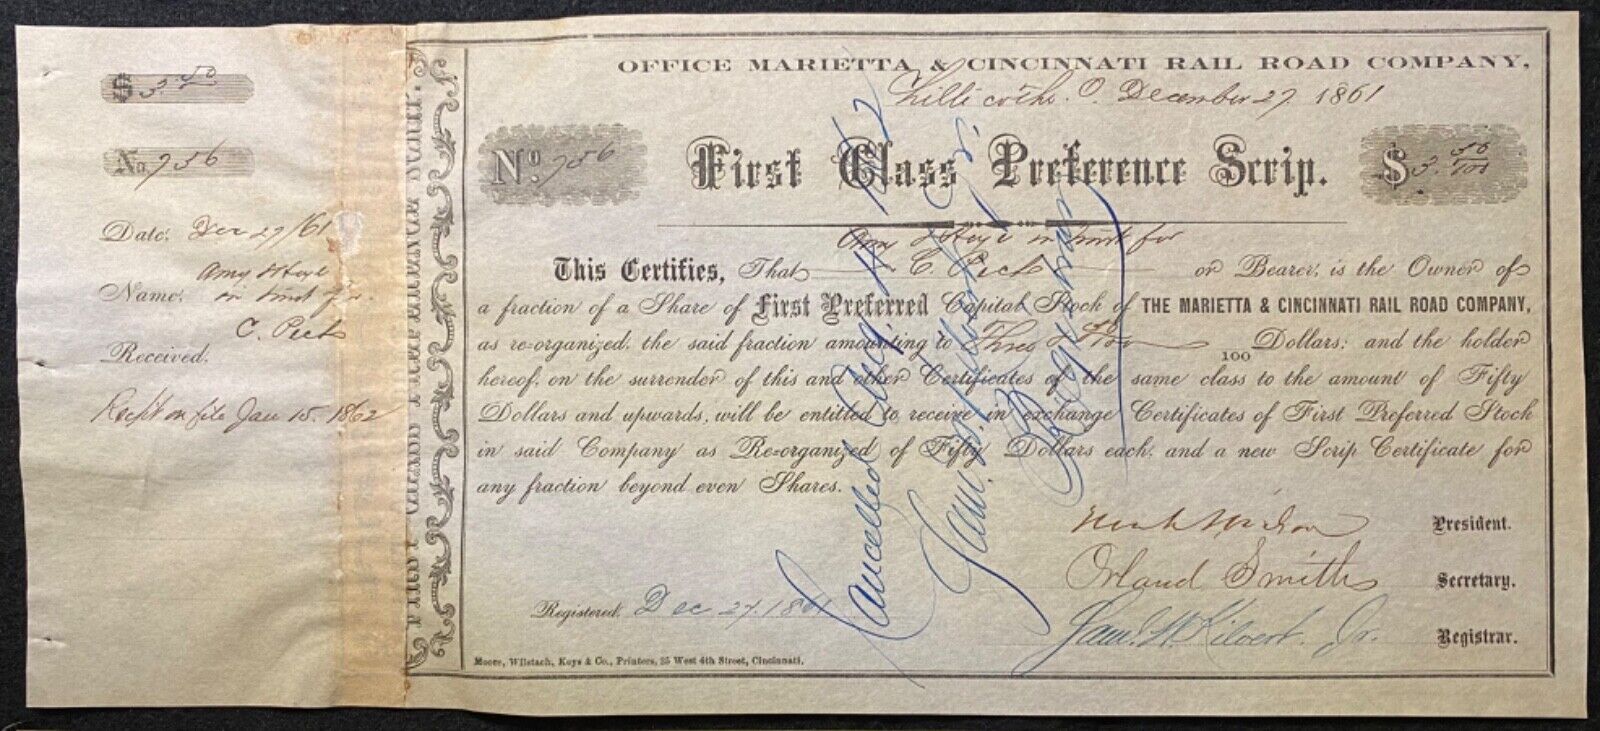 $3.50
No. 756
Date: Dec 27/61
Name: Amy Hoyt
in trust for
C. Peck
Received.
Rec't on file Jan 15. 1862
OFFICE MARIETTA & CINCINNATI RAIL ROAD COMPANY,
Chillicothe. O. December 27. 1861
No. 756
First Class Preference Scrip.
$3. 50/100
in trust for
This Certifies, That C. Peck or Bearer, is the Owner of
a fraction of a Share of First Preferred Capital Stock of THE MARIETTA & CINCINNATI RAIL ROAD COMPANY,
as re-organized; the said fraction amounting to Three & 50/100 Dollars; and the holder
hereof, on the surrender of this and other Certificates of the same class to the amount of Fifty
Dollars and upwards, will be entitled to receive in exchange Certificates of First Preferred Stock
in said Company as Re-organized of Fifty Dollars each, and a new Scrip Certificate for
any fraction beyond even Shares.
President.
Orland Smith Secretary.
Registered, Dec 27, 1861
Saml. W. Kilvert. Jr. Registrar.
Moore, Wilstach, Keys & Co., Printers, 25 West 4th Street, Cincinnati.
Cancelled
Saml. W. Kilvert Jr.
Registrar